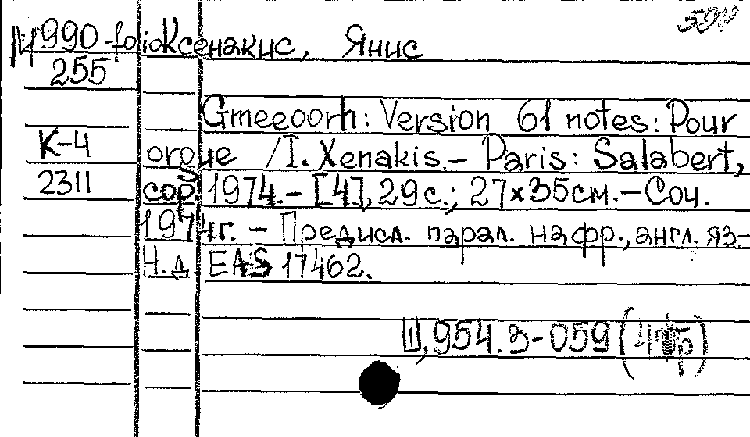 М990-folio Ксенакис, Янис
255
Gmeeoorh: Version 61 notes: Pour
К-4 orgue / I. Xenakis. – Paris: Salabert,
2311 cop 1974. – [4], 29 с.; 27×35см. – Соч.
1974г. – Предисл. парал. на фр., англ. яз–
Н.д. EAS 17462.
Ш,954.3-059